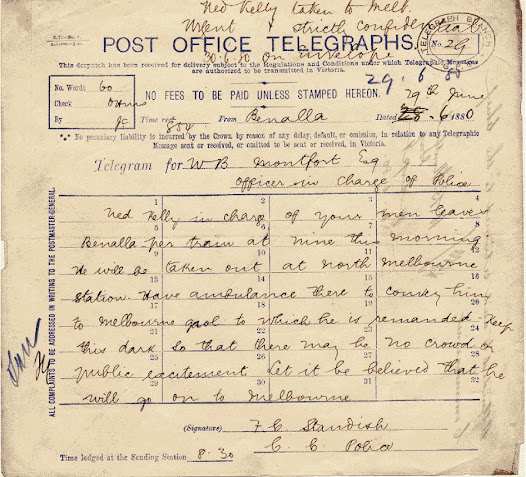 Ned Kelly taken to Melb.
Urgent & strictly confidential
POST OFFICE TELEGRAPHS.
TELEGRAPH BRANCH
No. 29
30.6.80 on envelope
This despatch has been received for delivery subject to the Regulations and Conditions under which Telegraphic Messages
are authorized to be transmitted in Victoria.
29.6.80
No. Words 60
Check
By
NO FEES TO BE PAID UNLESS STAMPED HEREON.
29th June
Time recd 850 From Benalla Dated 28.6.1880
No pecuniary liability is incurred by the Crown by reason of any delay, default, or omission, in relation to any Telegraphic
Message sent or received, or omitted to be sent or received, in Victoria.
Telegram for W B Montfort Esq
Officer in Charge of Police
1 2 3 4
Ned Kelly in charge of your men leaves
5 6 7 8
Benalla per train at nine this morning
9 10 11 12
He will be taken out at North Melbourne
13 14 15 16
station. Have ambulance there to convey him
17 18 19 20
to Melbourne gaol to which he is remanded. Keep
21 22 23 24
this dark so that there may be no crowd or
25 26 27 28
public excitement Let it be believed that he
29 30 31 32
will go on to Melbourne
(Signature) F. C. Standish
C. C. Police
Time lodged at the Sending Station 8.30
ALL COMPLAINTS TO BE ADDRESSED IN WRITING TO THE POSTMASTER-GENERAL.